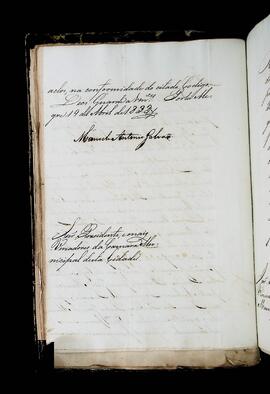 actos, na conformidade do citado Codigo.
Deos Guarde a Vm.ces Porto Ale-
gre, 19 de Abril de 1833.
Manoel Antonio Galvão
Snr.s Presidente, e mais
Vereadores da Camara Mu-
nicipal desta Cidade.